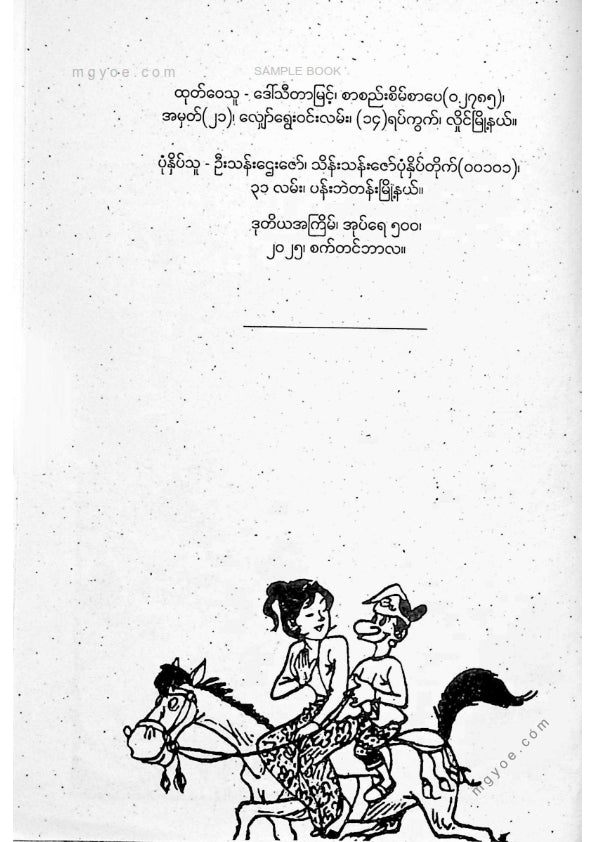 mgyoe.com SAMPLE BOOK
ထုတ်ဝေသူ - ဒေါ်သီတာမြင့်၊ စာစည်းစိမ်စာပေ(၀၂၇၈၅)၊
အမှတ်(၂၁)၊ လျှော်ရွေးဝင်းလမ်း၊ (၁၄)ရပ်ကွက်၊ လှိုင်မြို့နယ်။
ပုံနှိပ်သူ - ဦးသန်းဌေးဇော်၊ သိန်းသန်းဇော်ပုံနှိပ်တိုက်(၀၀၁၀၁)၊
၃၁ လမ်း၊ ပန်းဘဲတန်းမြို့နယ်။
ဒုတိယအကြိမ်၊ အုပ်ရေ ၅၀၀၊
၂၀၂၅၊ စက်တင်ဘာလ။
mgyoe.com